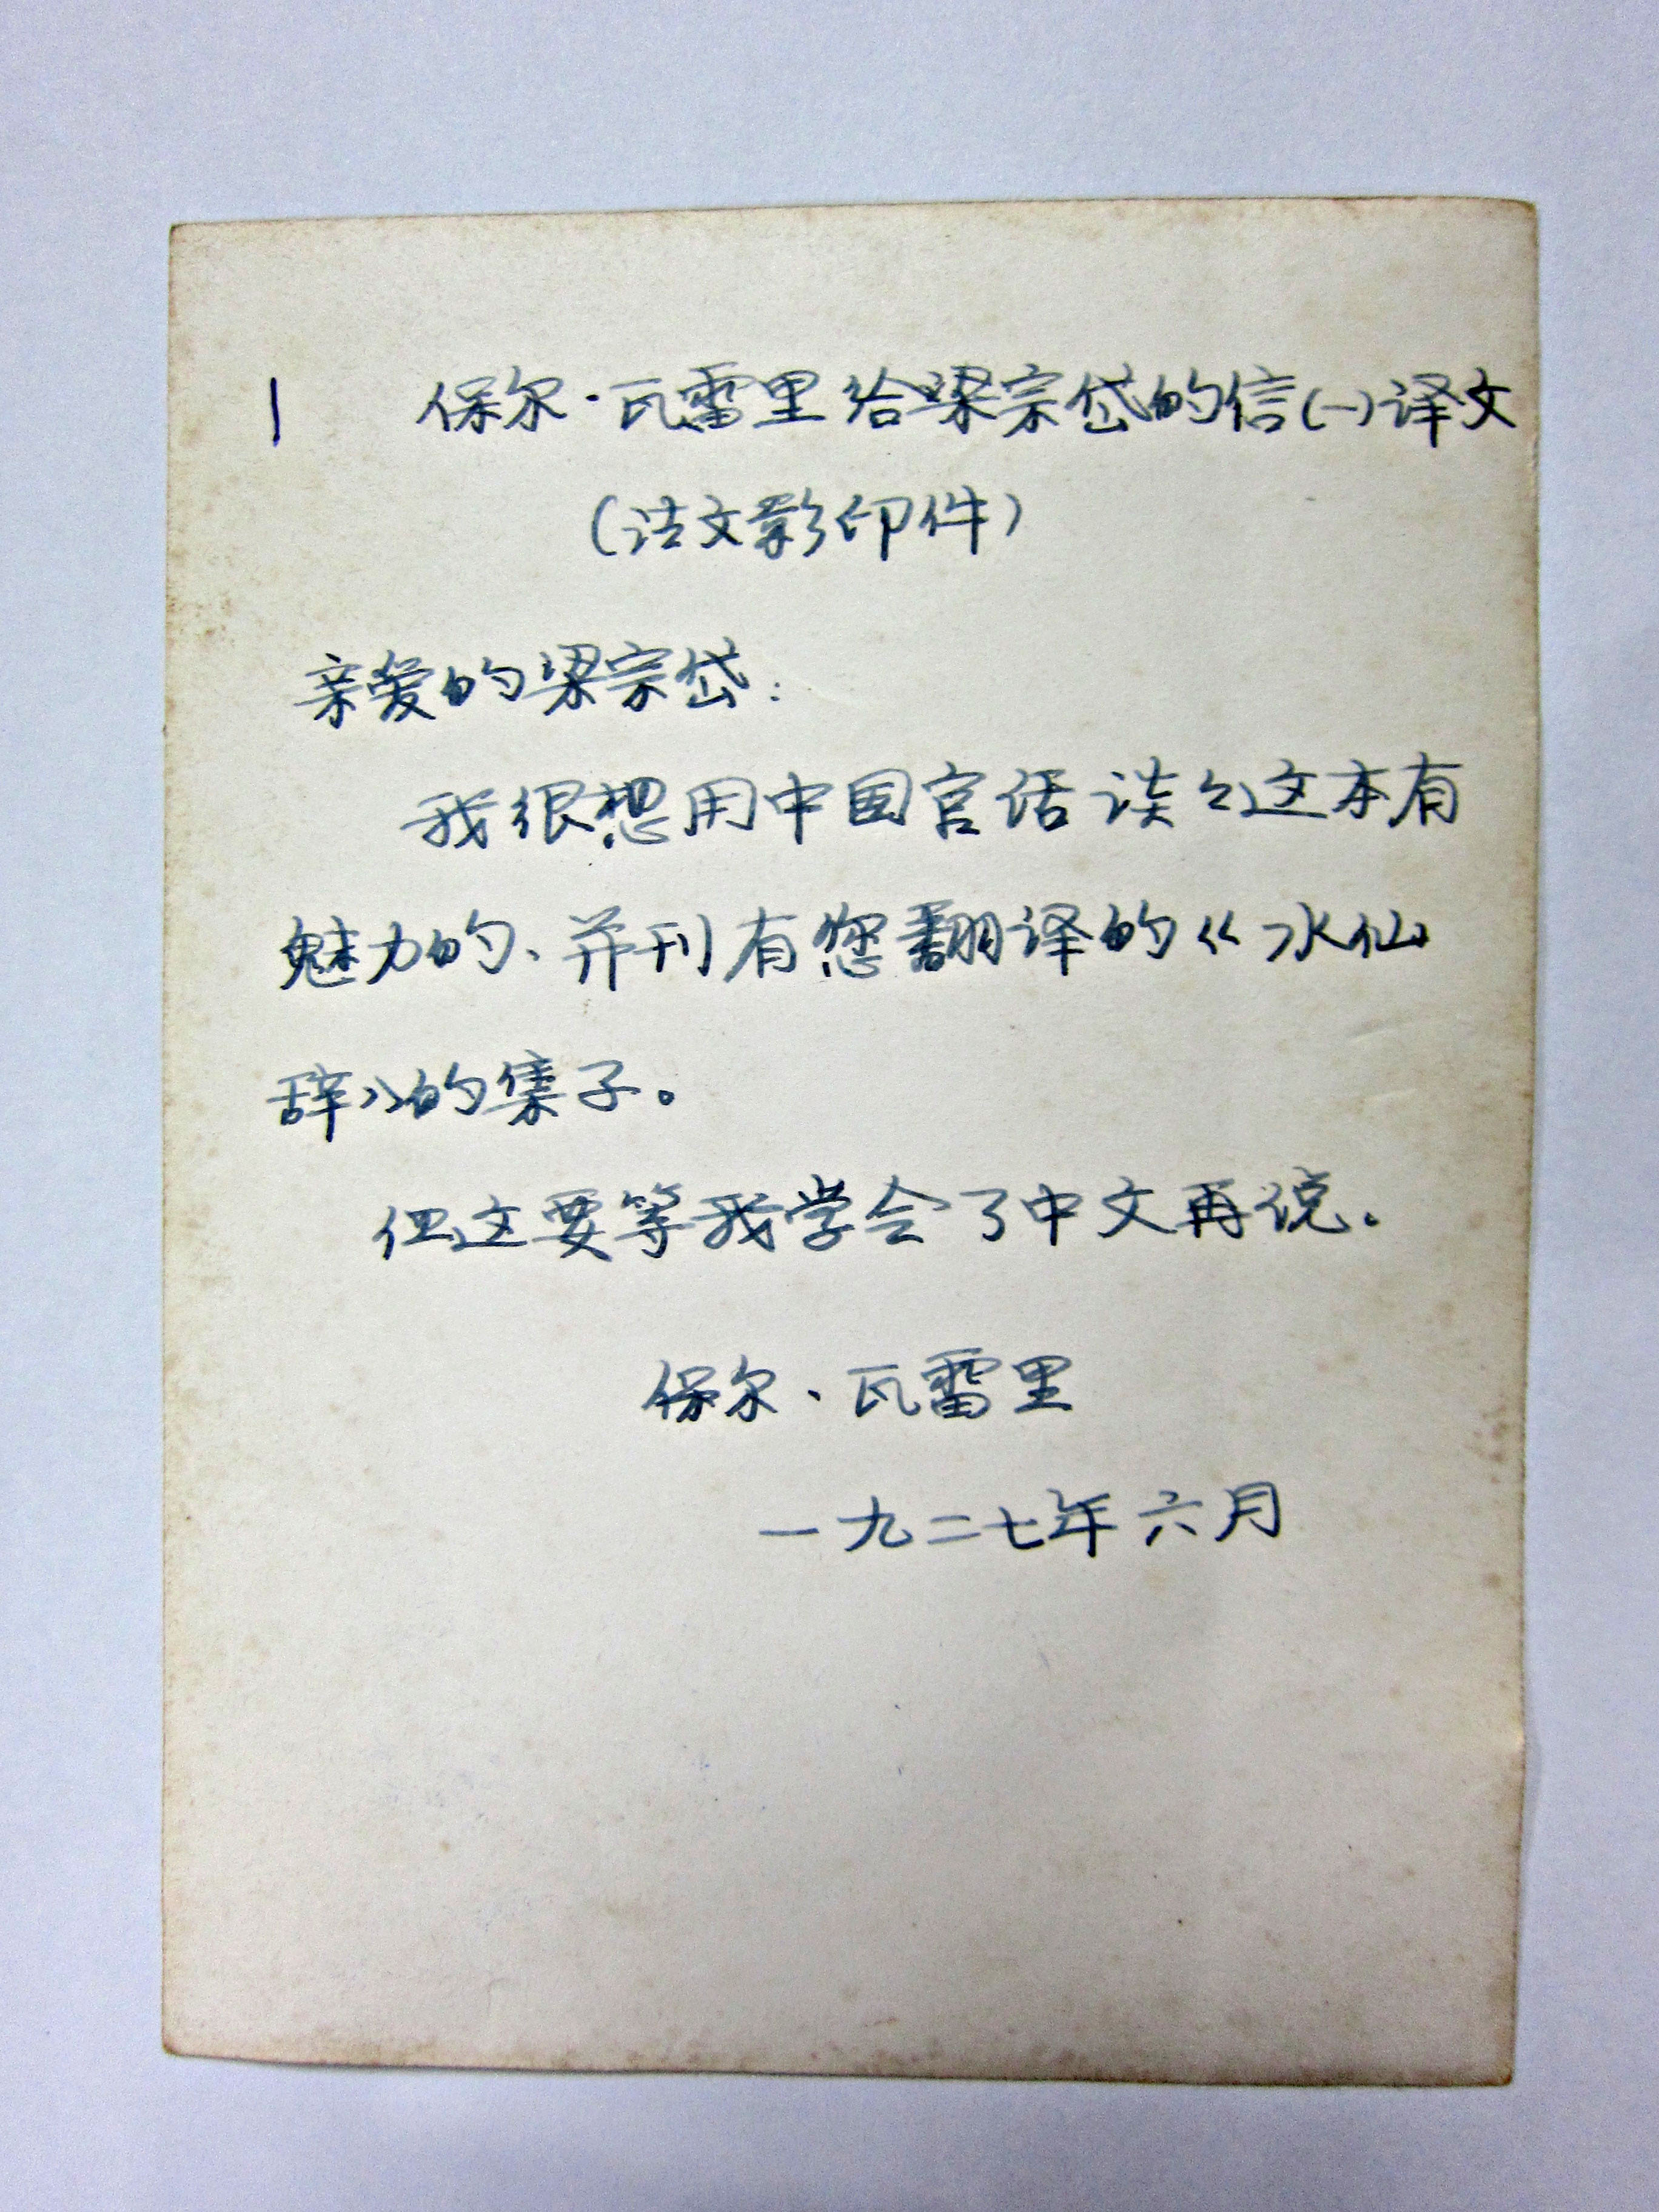 1 保尔·瓦雷里给梁宗岱的信(一)译文
(法文影印件)
亲爱的梁宗岱:
我很想用中国官话谈々这本有
魅力的、并刊有您翻译的《水仙
辞》的集子。
但这要等我学会了中文再说。
保尔、瓦雷里
一九二七年六月